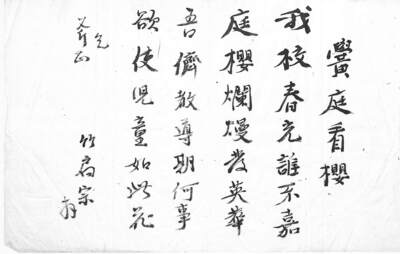 黌庭看櫻
我校春光誰不嘉
庭櫻爛熳發英華
吾儕教導期何事
欲使兒童如此花
乞
斧正
竹扇宗